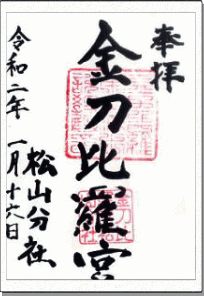 奉拝
金刀比羅宮
松山分社
令和二年 一月十六日